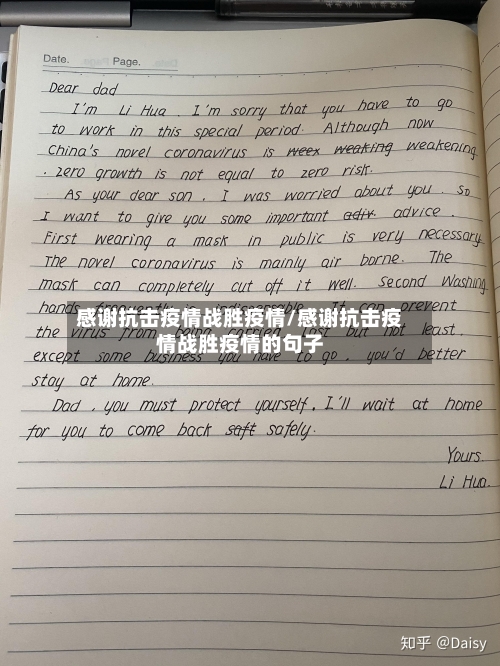 Date.
Page.
Dear dad
I'm Li Hua. I'm sorry that you have to go
to work in this special period. Although now
China's novel coronavirus is weex weaking weakening
. zero growth is not equal to zero risk.
As your dear son, I was worried about you. So
I want to give you some important adiv. advice.
First wearing a mask in public is very necessary
The novel coronavirus is mainly air borne. The
mask can completely cut off it well. Second Washing
hands frequently is indispensable. It can prevent
感谢抗击疫情战胜疫情/感谢抗击疫
the virus from being carried. Last but not least.
情战胜疫情的句子
except some business you have to go, you'd better
stay at home.
Dad, you must protect yourself. I'll wait at home
for you to come back saft safely.
Yours.
Li Hua.
知乎 @Daisy